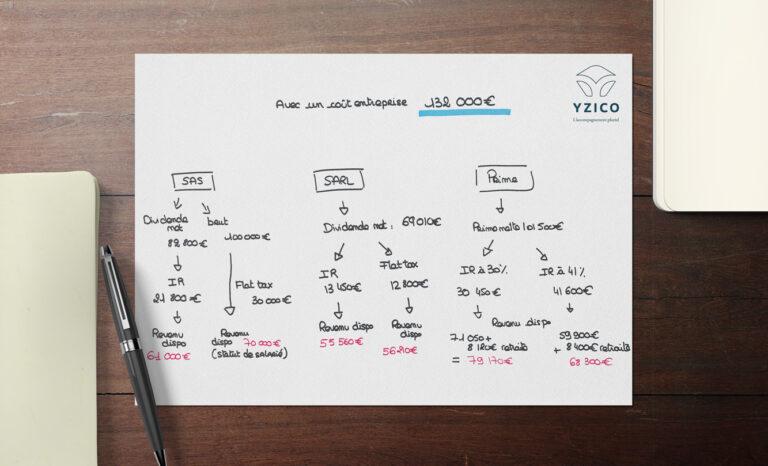 Avec un coût entreprise 132 000€
YZICO
L'accompagnement pluriel
SAS
Dividende
net
82 800€
brut
100 000€
IR
21 800€
Flat tax
30 000€
Revenu
dispo
61 000€
Revenu
dispo 70 000€
(statut de salarié)
SARL
Dividende net : 69 010€
IR
13 450€
Flat tax
12 800€
Revenu dispo
55 560€
Revenu
dispo
56 210€
Prime
Prime nette 101 500€
IR à 30%
30 450€
IR à 41%
41 600€
Revenu dispo
71 050+
8 120€ retraite
= 79 170€
59 900€
+ 8 400€ retraite
68 300€